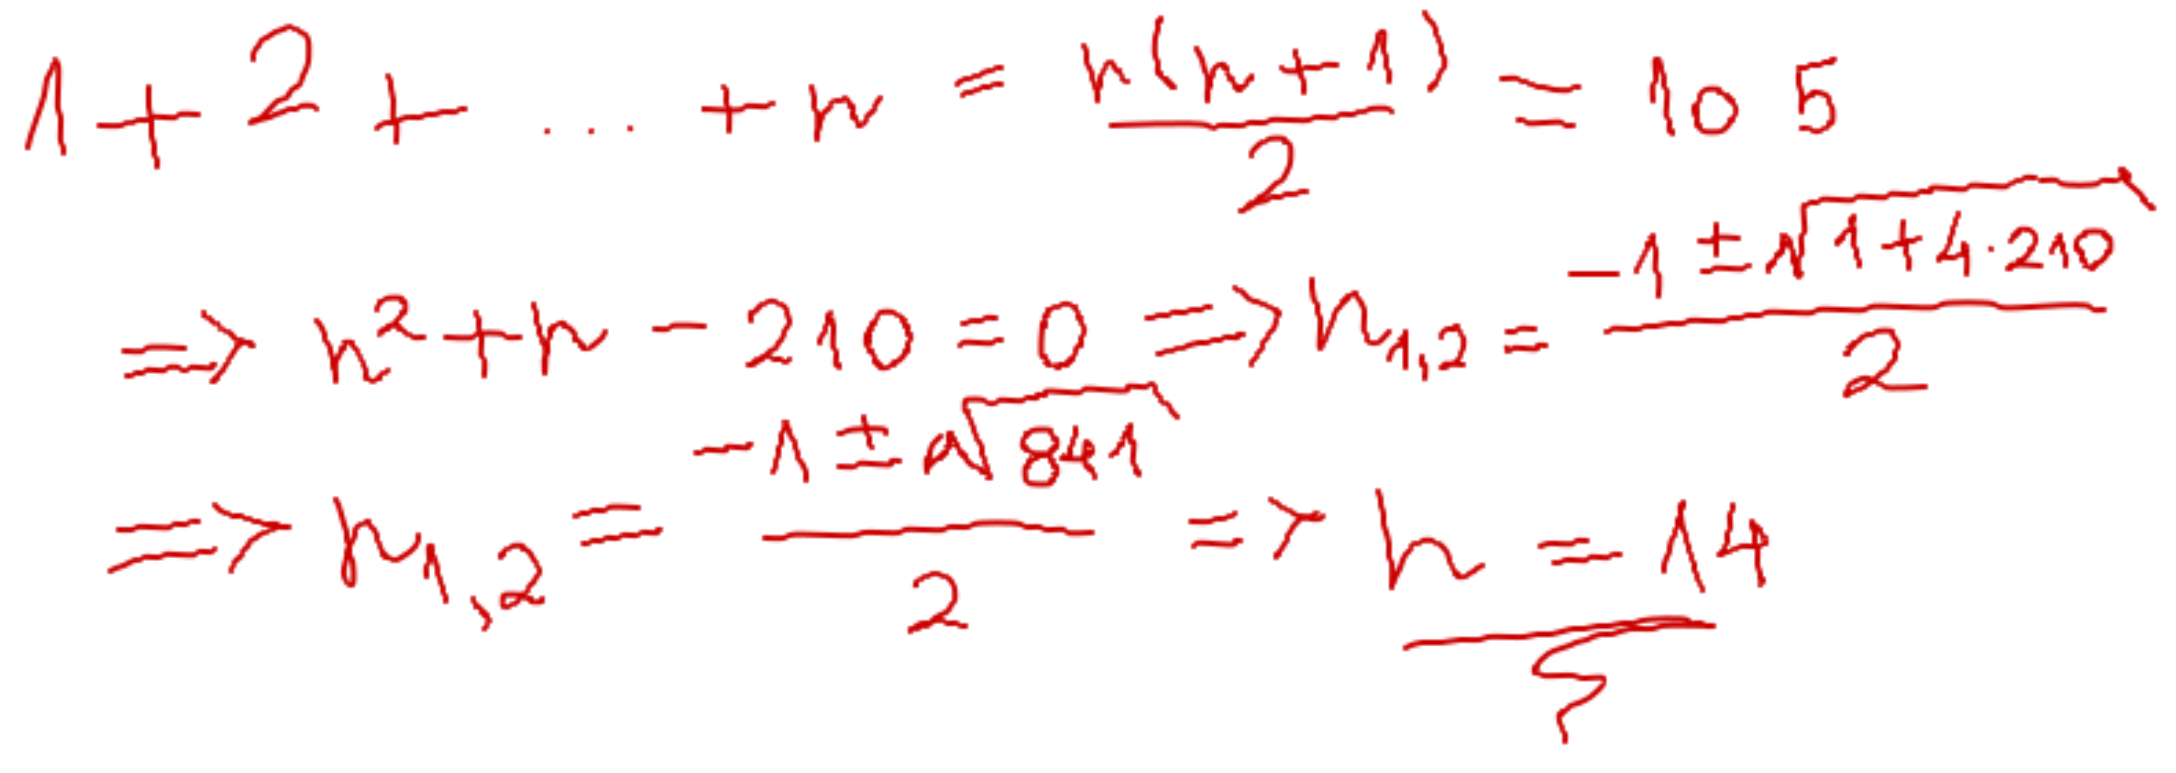 1 + 2 + ... + n = n(n+1)/2 = 105
=> n² + n - 210 = 0 => n₁,₂ = (-1 ± √(1+4·210))/2
=> n₁,₂ = (-1 ± √841)/2 => n = 14